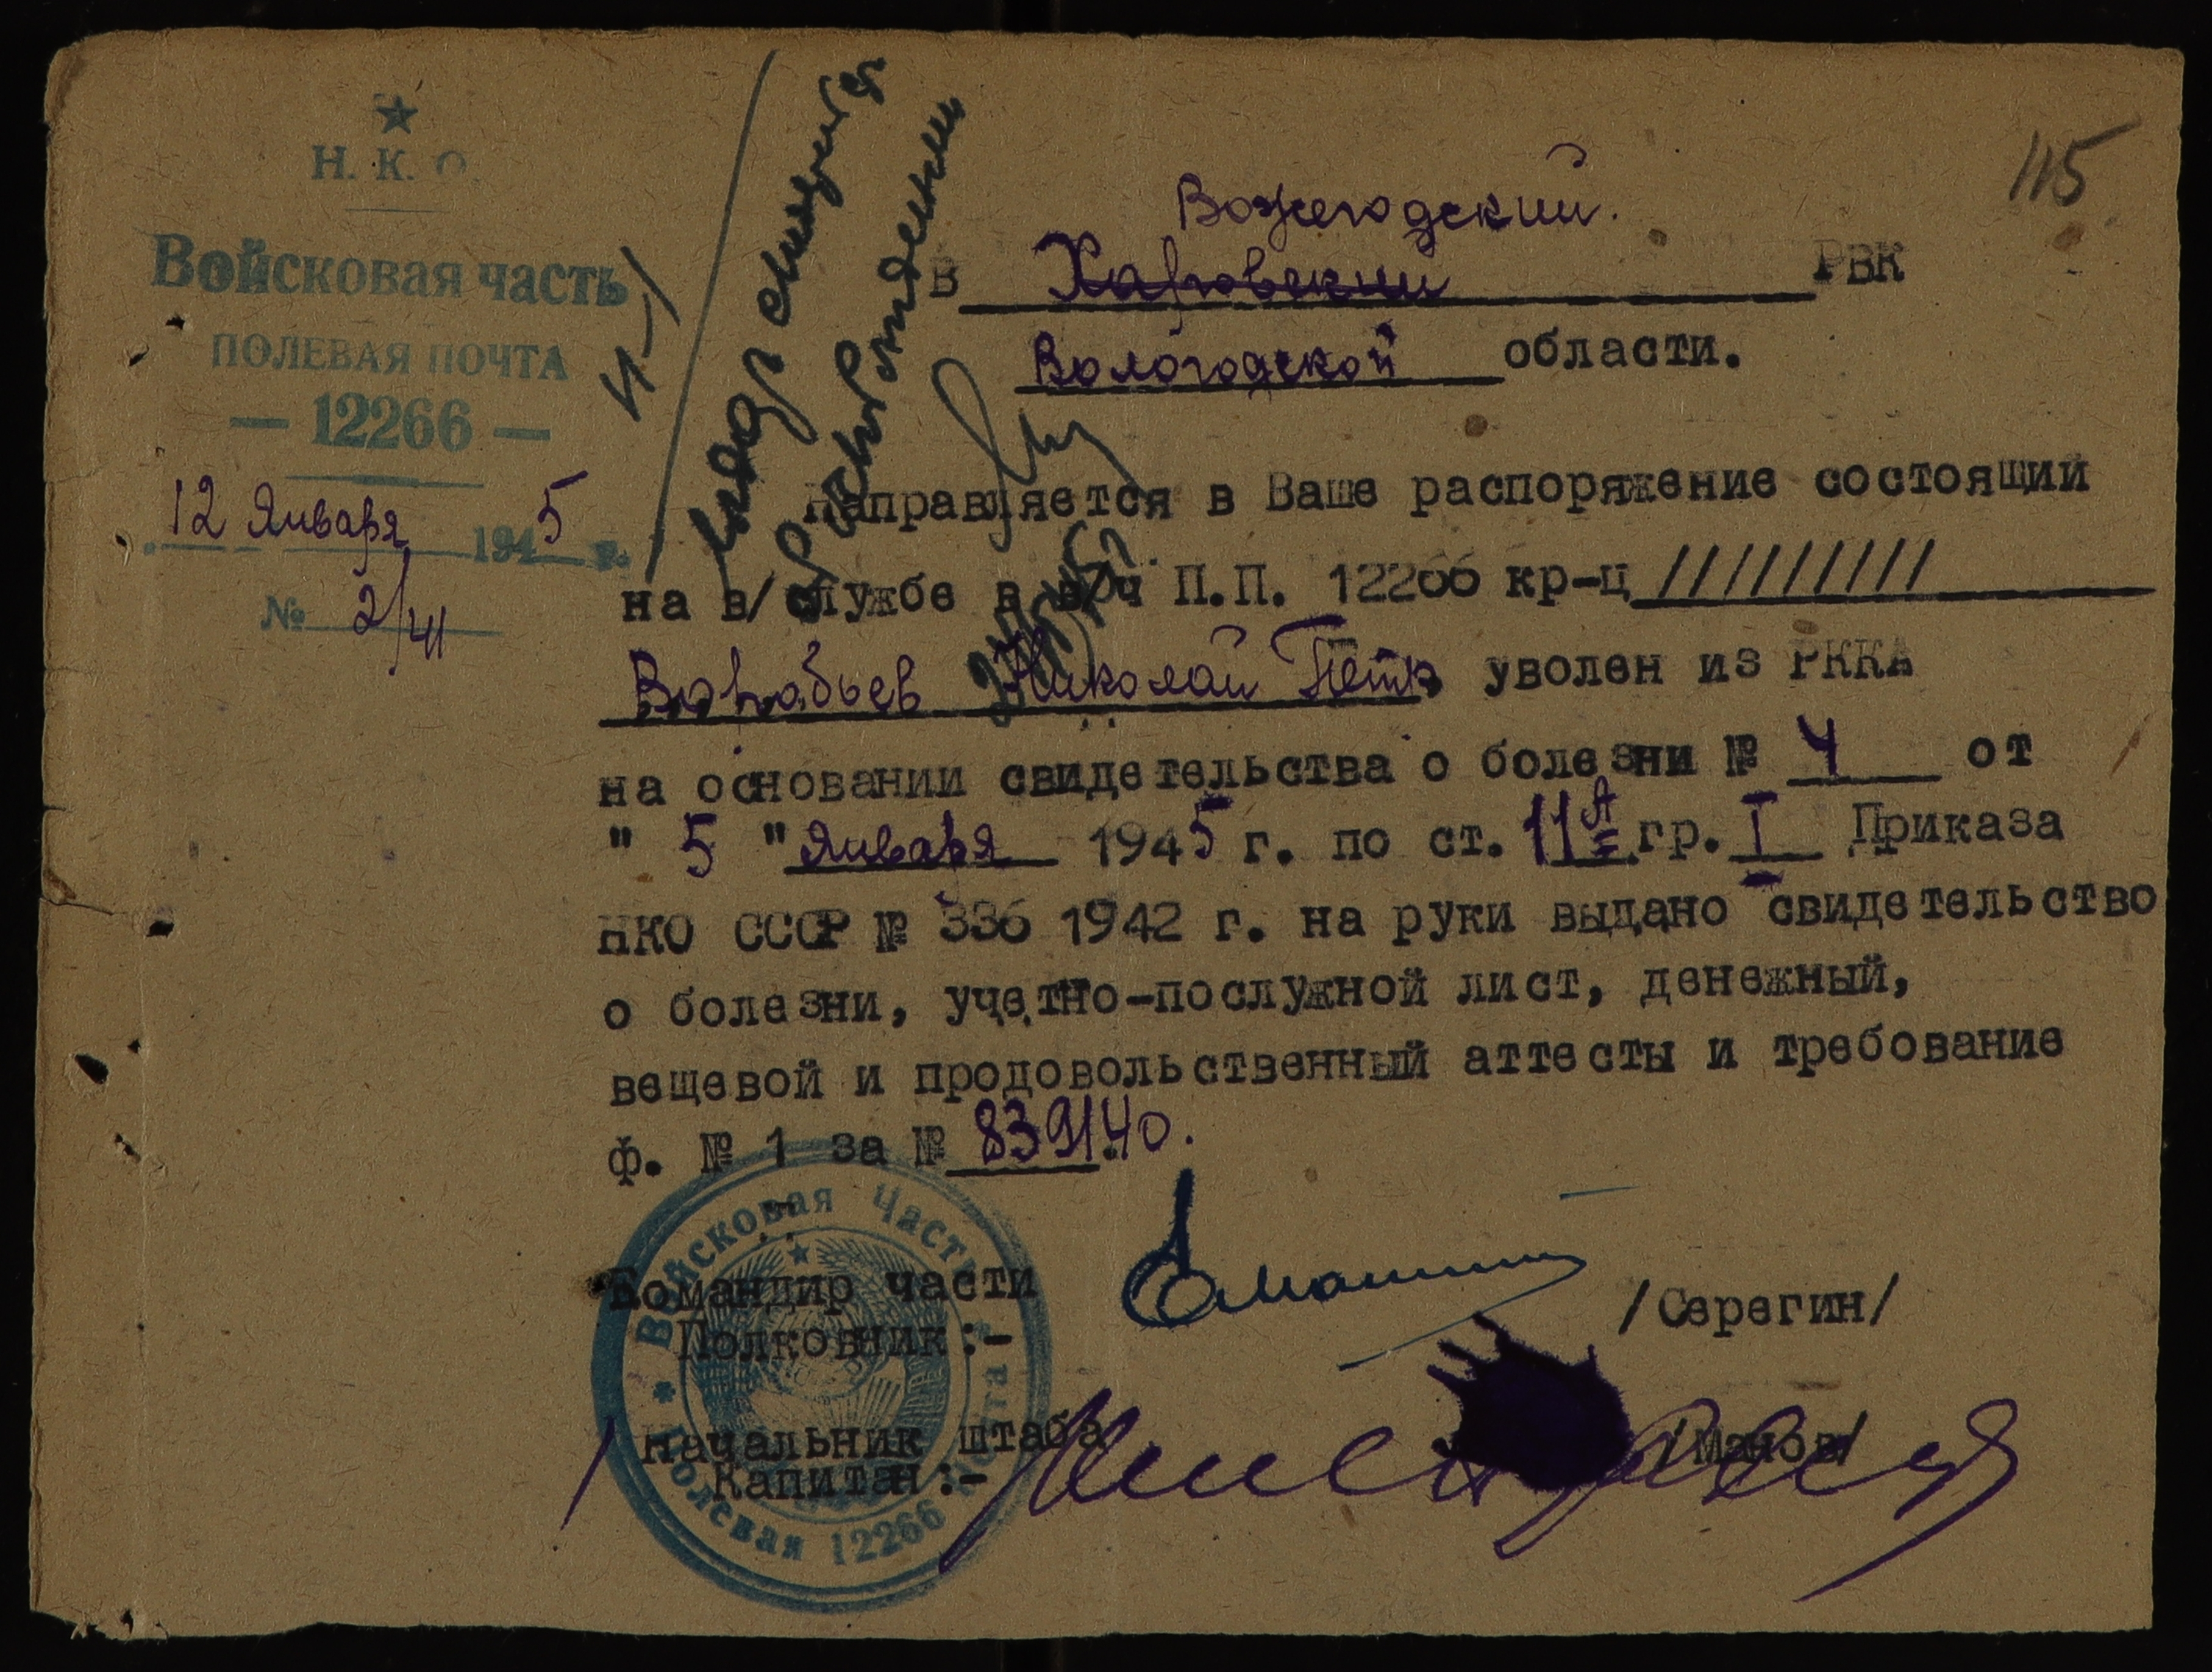 115
Н. К. О.
Войсковая часть
ПОЛЕВАЯ ПОЧТА
— 12266 —
12 Января 1945 г.
№ 2/41
Вожегодский.
В Харовский РВК
Вологодской области.
Направляется в Ваше распоряжение состоящий
на в/службе в в/ч П.П. 12266 кр-ц //////////
Воробьев Николай Петр уволен из РККА
на основании свидетельства о болезни № 4 от
" 5 " Января 1945 г. по ст. 11А гр. I Приказа
НКО СССР № 336 1942 г. на руки выдано свидетельство
о болезни, учетно-послужной лист, денежный,
вещевой и продовольственный аттесты и требование
ф. № 1 за № 839140.
Командир части
Полковник:- /Серегин/
Начальник штаба
Капитан:- /Манов/
Войсковая Часть
Полевая почта 12266